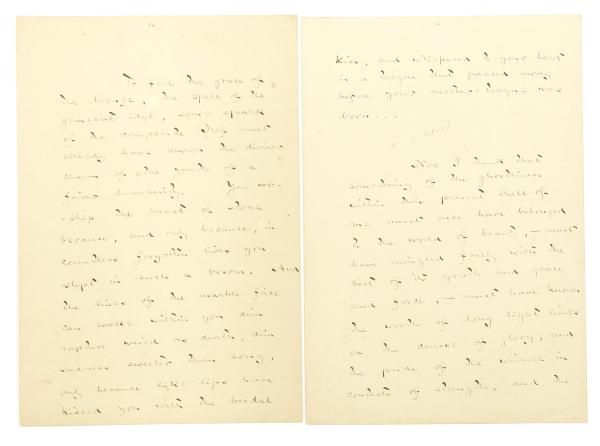 12
To feel the grace of
the bronze, the spell of the
gem-cut idyl, some spark
of the composite Self must
already have known the divine
charm of the youth of a
fairer humanity. You wor-
-ship the breast of stone
because, and only because, in
countless forgotten lives you
slept in such a bosom. And
the lines of the marble face
can evoke within you dim
rapture weird as death, dim
sadness sweeter than song,
only because like lips have
kissed you with the bridal
kiss, and whispered to your heart
in a tongue that passed away
before your mother-tongue was
born...
Now I think that
something of the ghostliness
within this present shell of
me must once have belonged
to the world of beauty, — must
have mingled freely with the
best of its youth and grace
and force, — must have known
the worth of long light limbs
on the course of glory, and
the pride of the winner in
contests of strength, and the